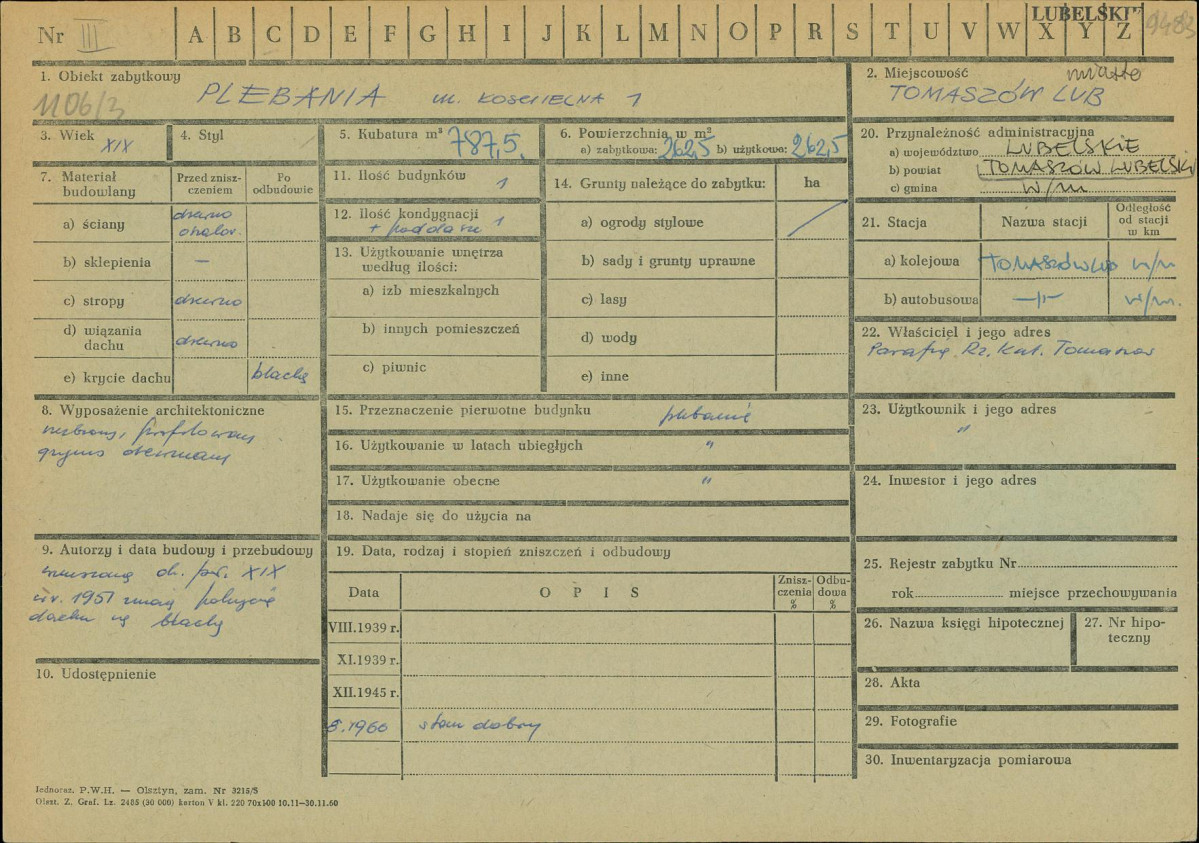 Nr III A B C D E F G H I J K L M N O P R S T U V W X Y Z
LUBELSKIE
9483
1. Obiekt zabytkowy
1106/3
PLEBANIA ul. KOŚCIELNA 1
2. Miejscowość miasto
TOMASZÓW LUB
3. Wiek XIX
4. Styl
5. Kubatura m³ 787,5.
6. Powierzchnia w m²
a) zabytkowa: 262,5 b) użytkowa: 262,5
7. Materiał budowlany
Przed zniszczeniem
Po odbudowie
a) ściany drewno
b) sklepienia —
c) stropy drewno
d) wiązania dachu drewno
e) krycie dachu blachą
8. Wyposażenie architektoniczne
profilowany
gzyms drewniany
9. Autorzy i data budowy i przebudowy
XIX
1957
dachu na blachę
10. Udostępnienie
11. Ilość budynków 1
12. Ilość kondygnacji 1
+ poddasze
13. Użytkowanie wnętrza według ilości:
a) izb mieszkalnych
b) innych pomieszczeń
c) piwnic
14. Grunty należące do zabytku: ha
a) ogrody stylowe
b) sady i grunty uprawne
c) lasy
d) wody
e) inne
15. Przeznaczenie pierwotne budynku plebania
16. Użytkowanie w latach ubiegłych "
17. Użytkowanie obecne "
18. Nadaje się do użycia na
19. Data, rodzaj i stopień zniszczeń i odbudowy
Data
O P I S
Zniszczenia %
Odbudowa %
VIII.1939 r.
XI.1939 r.
XII.1945 r.
8.1960 stan dobry
20. Przynależność administracyjna
a) województwo LUBELSKIE
b) powiat TOMASZÓW LUBELSKI
c) gmina w/m
21. Stacja
Nazwa stacji
Odległość od stacji w km
a) kolejowa TOMASZÓW LUB w/m
b) autobusowa —"— w/m.
22. Właściciel i jego adres
Parafia Rz. Kat. Tomaszów
23. Użytkownik i jego adres
"
24. Inwestor i jego adres
25. Rejestr zabytku Nr
rok miejsce przechowywania
26. Nazwa księgi hipotecznej
27. Nr hipoteczny
28. Akta
29. Fotografie
30. Inwentaryzacja pomiarowa
Jednoraz. P.W.H. — Olsztyn, zam. Nr 3215/S
Olszt. Z. Graf. Lz. 2485 (30 000) karton V kl. 220 70x100 10.11—30.11.60